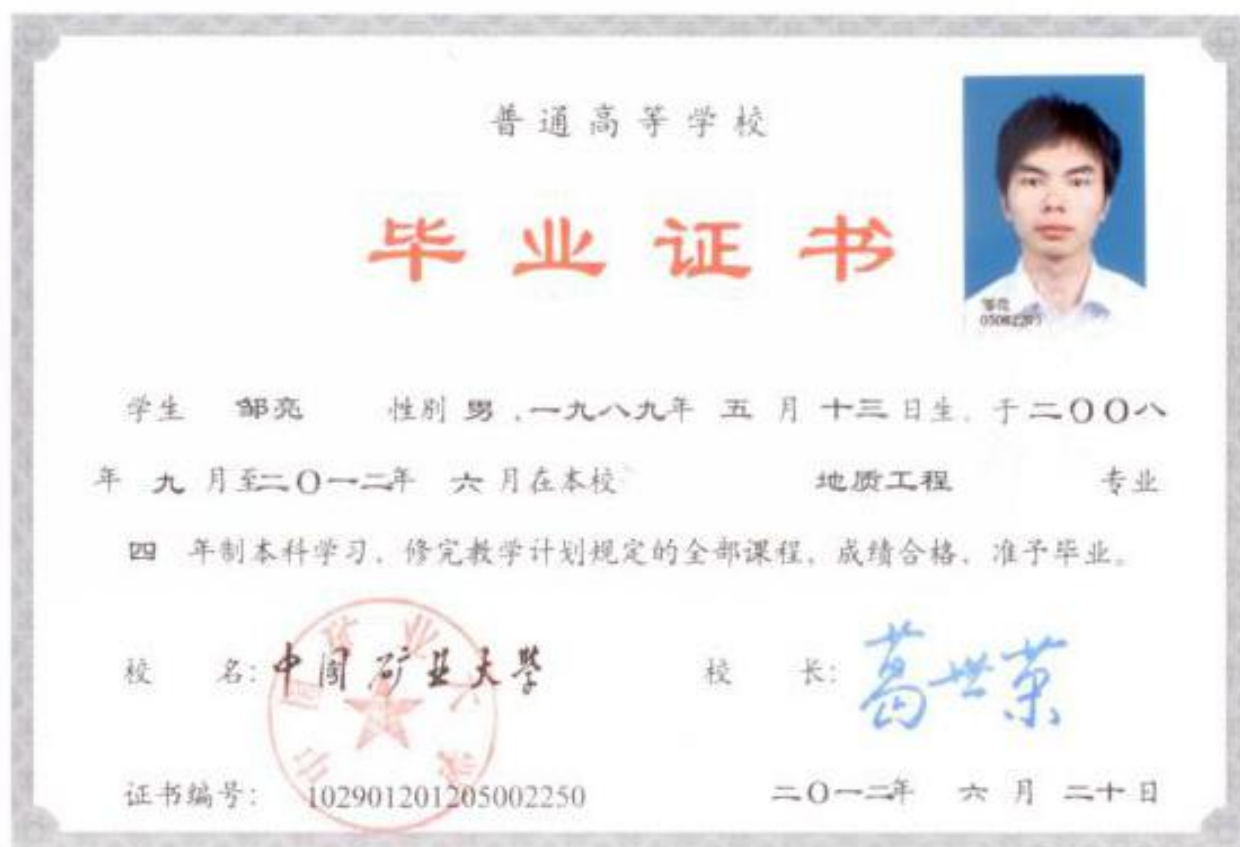 普通高等学校
毕业证书
05082203
学生 邹亮 性别 男，一九八九年 五 月 十三 日生，于二〇〇八
年 九 月至二〇一二年 六 月在本校 地质工程 专业
四 年制本科学习，修完教学计划规定的全部课程，成绩合格，准予毕业。
校 名：中国矿业大学 校 长：葛世荣
证书编号： 102901201205002250 二〇一二年 六 月 二十 日